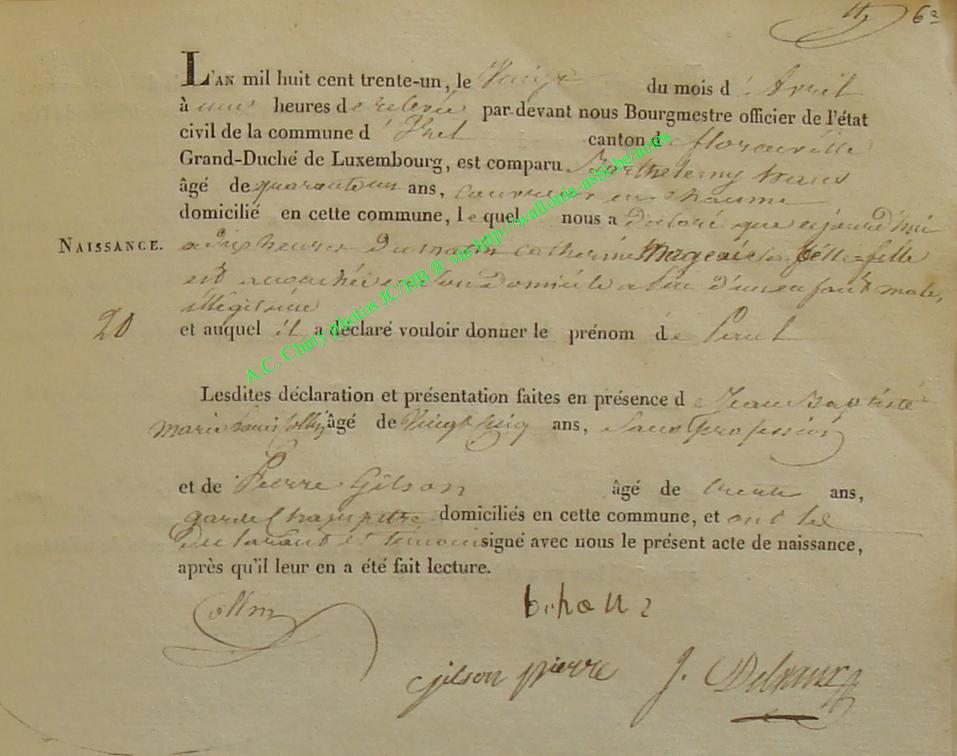 6e
L'AN mil huit cent trente-un, le Vingt du mois d'Avril
à une heures de relevée par-devant nous Bourgmestre officier de l'état
civil de la commune d'Izel canton de florenville
Grand-Duché de Luxembourg, est comparu Barthelemy hans
âgé de quarante un ans, couvreur en chaume
domicilié en cette commune, lequel nous a déclaré que aujourd'hui
NAISSANCE. a dix heures du matin catherine Mageais sa belle-fille
est accouchée en son domicile a lui d'un enfant male,
illégitime
20 et auquel il a déclaré vouloir donner le prénom de Paul
Lesdites déclaration et présentation faites en présence de Jean Baptiste
marie Louis Collin âgé de Vingt cinq ans, sans profession
et de Pierre Gilson âgé de trente ans,
garde champetre domiciliés en cette commune, et ont les
declarant et témoins signé avec nous le présent acte de naissance,
après qu'il leur en a été fait lecture.
Collin
gilson pierre J. Delvaux
A.C. Chiny photos IC/HB ® via http://wallonia-asbl.be/actes